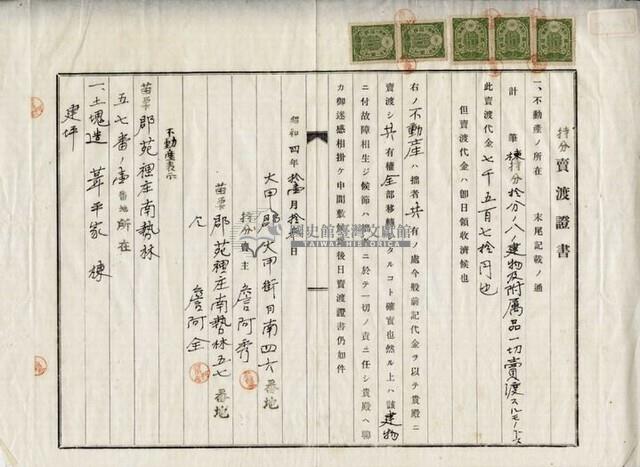 持分賣渡證書
一、不動產ノ所在　末尾記載ノ通
計　筆棟持分拾分ノ八建物及附属品一切賣渡スルモノトス
此賣渡代金七千五百七拾円也
但賣渡代金ハ卽日領收濟候也
右ノ不動産ハ拙者共有ノ處今般前記代金ヲ以テ貴殿ニ
賣渡シ共有權全部移轉タルコト確實也然ル上ハ該建物
ニ付故障相生シ候節ハ於テ一切ノ責ニ任シ貴殿ヘ聊
カ御迷惑相掛ケ申間敷後日賣渡證書仍如件
昭和四年拾壹月拾日
大甲郡大甲街日南四六番地
持分賣主　詹阿秀
苗栗郡苑裡庄南勢林五七番地
仝　詹阿金
不動產表示
苗栗郡苑裡庄南勢林
五七番ノ壹番地所在
一、土塊造　葺平家　棟
建坪
國史館臺灣文獻館
TAIWAN HISTORICA